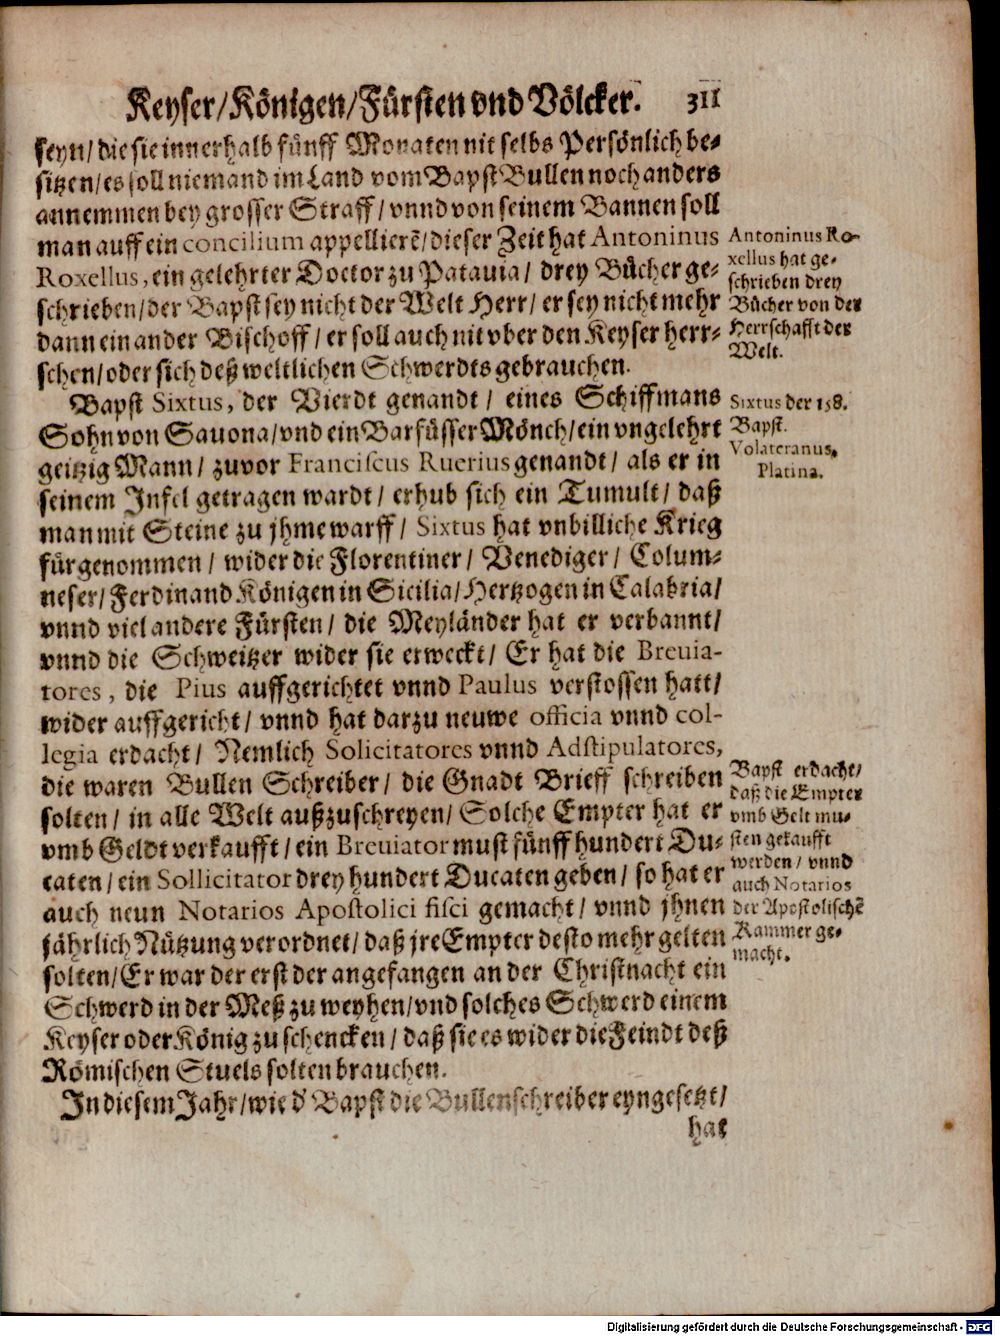 Keyser/Königen/Fürsten vnd Völcker. 311
seyn/die sie innerhalb fünff Monaten nit selbs Persönlich be-
sitzen/es soll niemand im Land vom Bapst Bullen noch anders
annemmen bey grosser Straff/vnnd von seinem Bannen soll
man auff ein concilium appellierẽ/dieser Zeit hat Antoninus
Roxellus, ein gelehrter Doctor zu Patauia/ drey Bücher ge-
schrieben/der Bapst sey nicht der Welt Herr/ er sey nicht mehr
dann ein ander Bischoff/ er soll auch nit vber den Keyser herr-
schen/oder sich deß weltlichen Schwerdts gebrauchen.
Antoninus Ro-
xellus hat ge-
schrieben drey
Bücher von der
Herrschafft der
Welt.
Bapst Sixtus, der Vierdt genandt/ eines Schiffmans
Sohn von Sauona/vnd ein Barfüsser Mönch/ein vngelehrt
geitzig Mann/ zuvor Franciscus Ruerius genandt/ als er in
seinem Insel getragen wardt/ erhub sich ein Tumult/ daß
man mit Steine zu jhme warff/ Sixtus hat vnbilliche Krieg
fürgenommen/ wider die Florentiner/ Venediger/ Colum-
neser/Ferdinand Königen in Sicilia/Hertzogen in Calabria/
vnnd viel andere Fürsten/ die Meyländer hat er verbannt/
vnnd die Schweitzer wider sie erweckt/ Er hat die Breuia-
tores, die Pius auffgerichtet vnnd Paulus verstossen hatt/
wider auffgericht/ vnnd hat darzu neuwe officia vnnd col-
legia erdacht/ Nemlich Solicitatores vnnd Adstipulatores,
die waren Bullen Schreiber/ die Gnadt Brieff schreiben
solten/ in alle Welt außzuschreyen/ Solche Empter hat er
vmb Geldt verkaufft/ein Breuiator must fünff hundert Du-
caten/ein Sollicitator drey hundert Ducaten geben/ so hat er
auch neun Notarios Apostolici fisci gemacht/ vnnd jhnen
jährlich Nützung verordnet/ daß jre Empter desto mehr gelten
solten/Er war der erst der angefangen an der Christnacht ein
Schwerd in der Meß zu weyhen/vnd solches Schwerd einem
Keyser oder König zu schencken/ daß sie es wider die Feindt deß
Römischen Stuels solten brauchen.
Sixtus der 158.
Bapst.
Volateranus,
Platina.
Bapst erdacht/
daß die Empter
vmb Gelt mu-
sten gekaufft
werden/ vnnd
auch Notarios
der Apostolischẽ
Kammer ge-
macht.
In diesem Jahr/wie d' Bapst die Bullenschreiber eyngesetzt/
hat
Digitalisierung gefördert durch die Deutsche Forschungsgemeinschaft - DFG